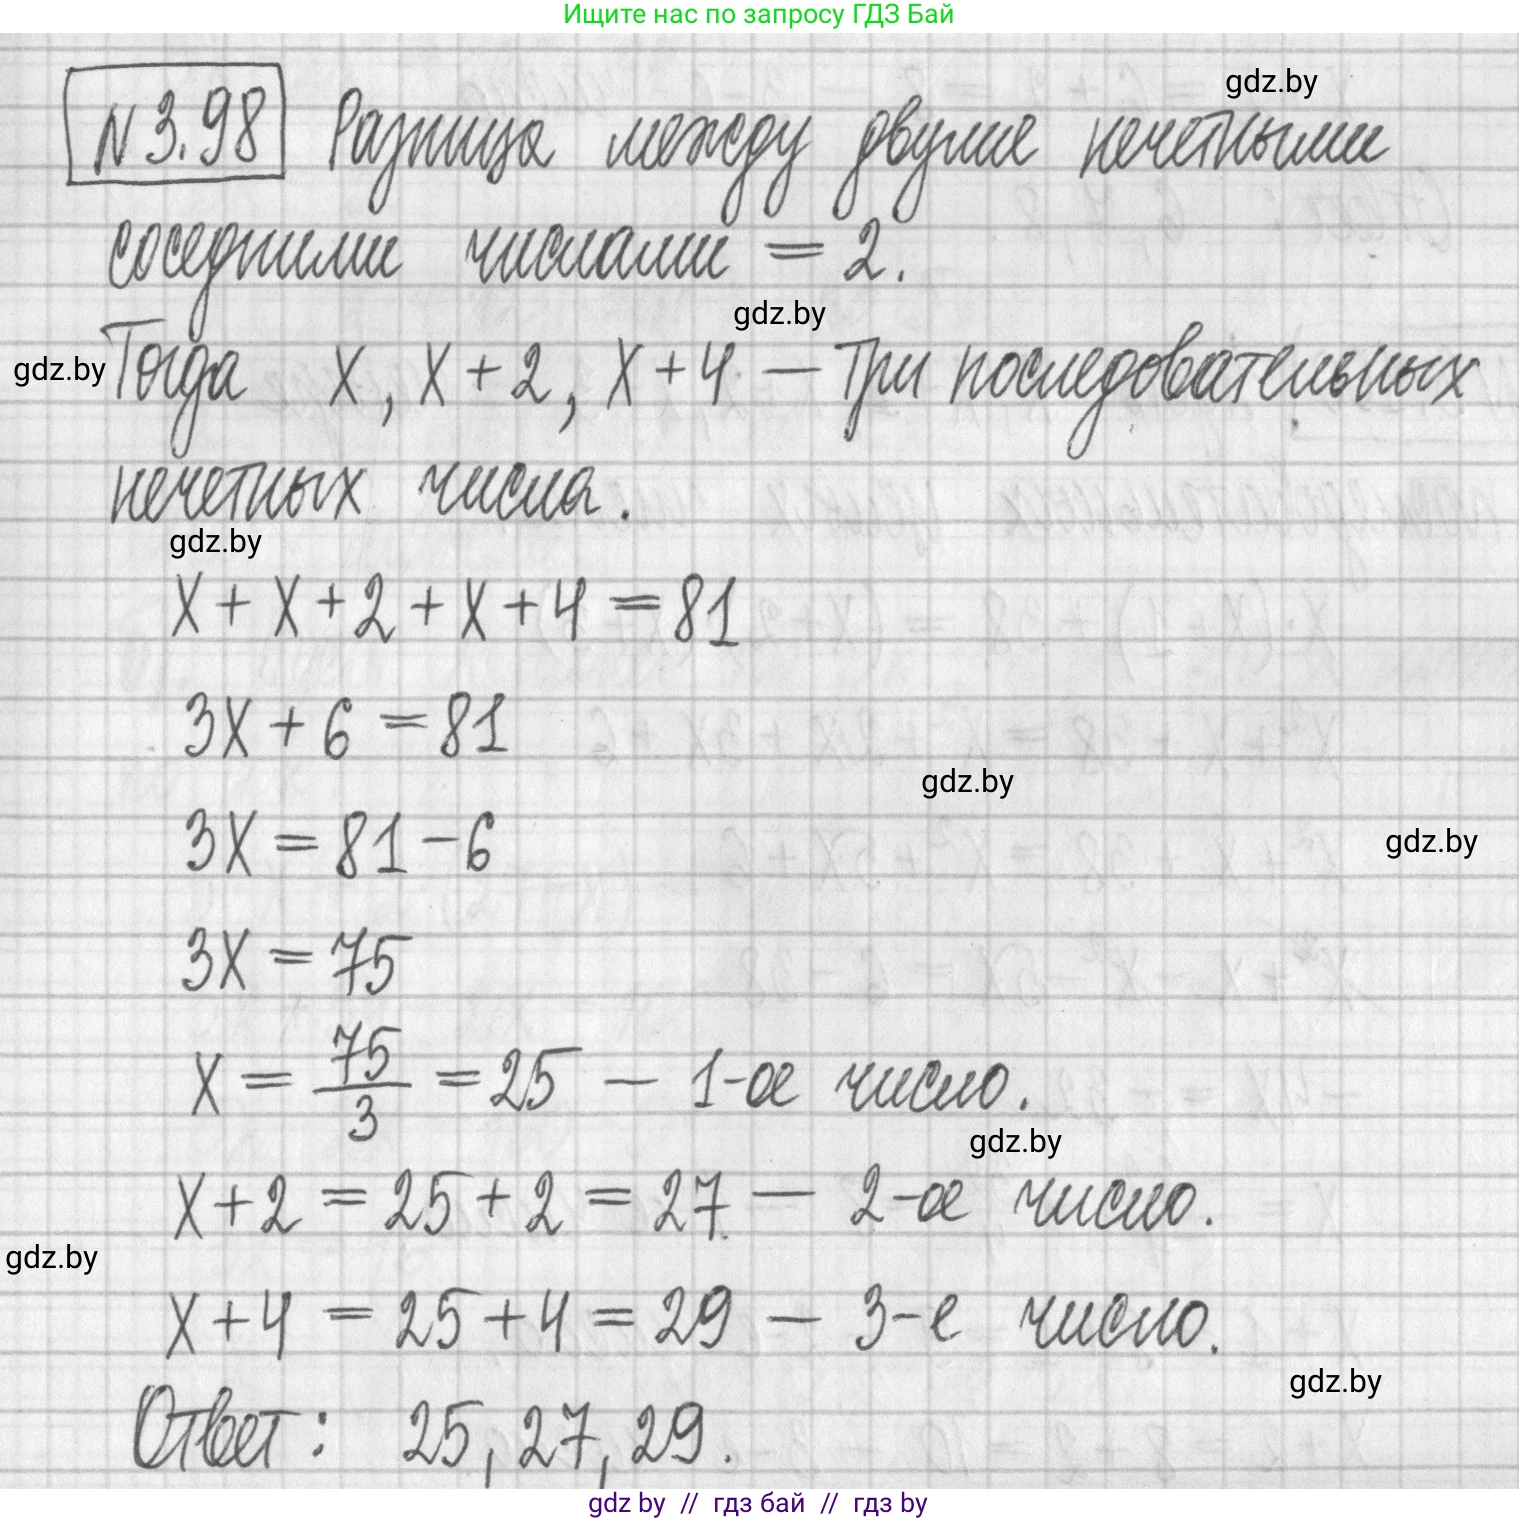 Ищите нас по запросу ГДЗ Бай
gdz.by
N 3.98 Разница между двумя нечетными
соседними числами = 2.
gdz.by
gdz.by
Тогда x, x+2, x+4 — три последовательных
нечетных числа.
gdz.by
x + x + 2 + x + 4 = 81
3x + 6 = 81
gdz.by
3x = 81 - 6
gdz.by
3x = 75
x = 75/3 = 25 — 1-ое число.
gdz.by
x+2 = 25+2 = 27 — 2-ое число.
gdz.by
x+4 = 25+4 = 29 — 3-е число.
gdz.by
Ответ: 25, 27, 29.
gdz by // гдз бай // гдз by